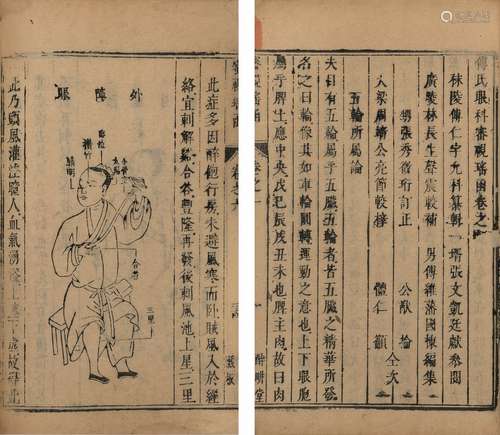 傅氏眼科審視瑤函卷之
秣陵傅仁宇允科纂輯 壻張文凱廷獻參閱
廣陵林長生聲震較補 男傅維藩國棟編集
甥張秀 珩訂正 公猷
人梁周靖公亮節較梓 體仁
全次
五輪所屬論
夫目有五輪屬乎五臟五輪者皆五臟之精華所發
名之曰輪像其如車輪圓轉運動之意也上下眼胞
屬乎脾土應中央戊己辰戌丑未也脾主肉故曰肉
卷之一
醉耕堂
卷之六
此症多因醉飽行房未避風寒而臥賊風入於經
絡宜刺 合谷豐隆再發後刺風池上星三里
外障眼
睛明
合谷
三里
此乃頭風灌注瞳人血氣湧溢上盛下虛故得此